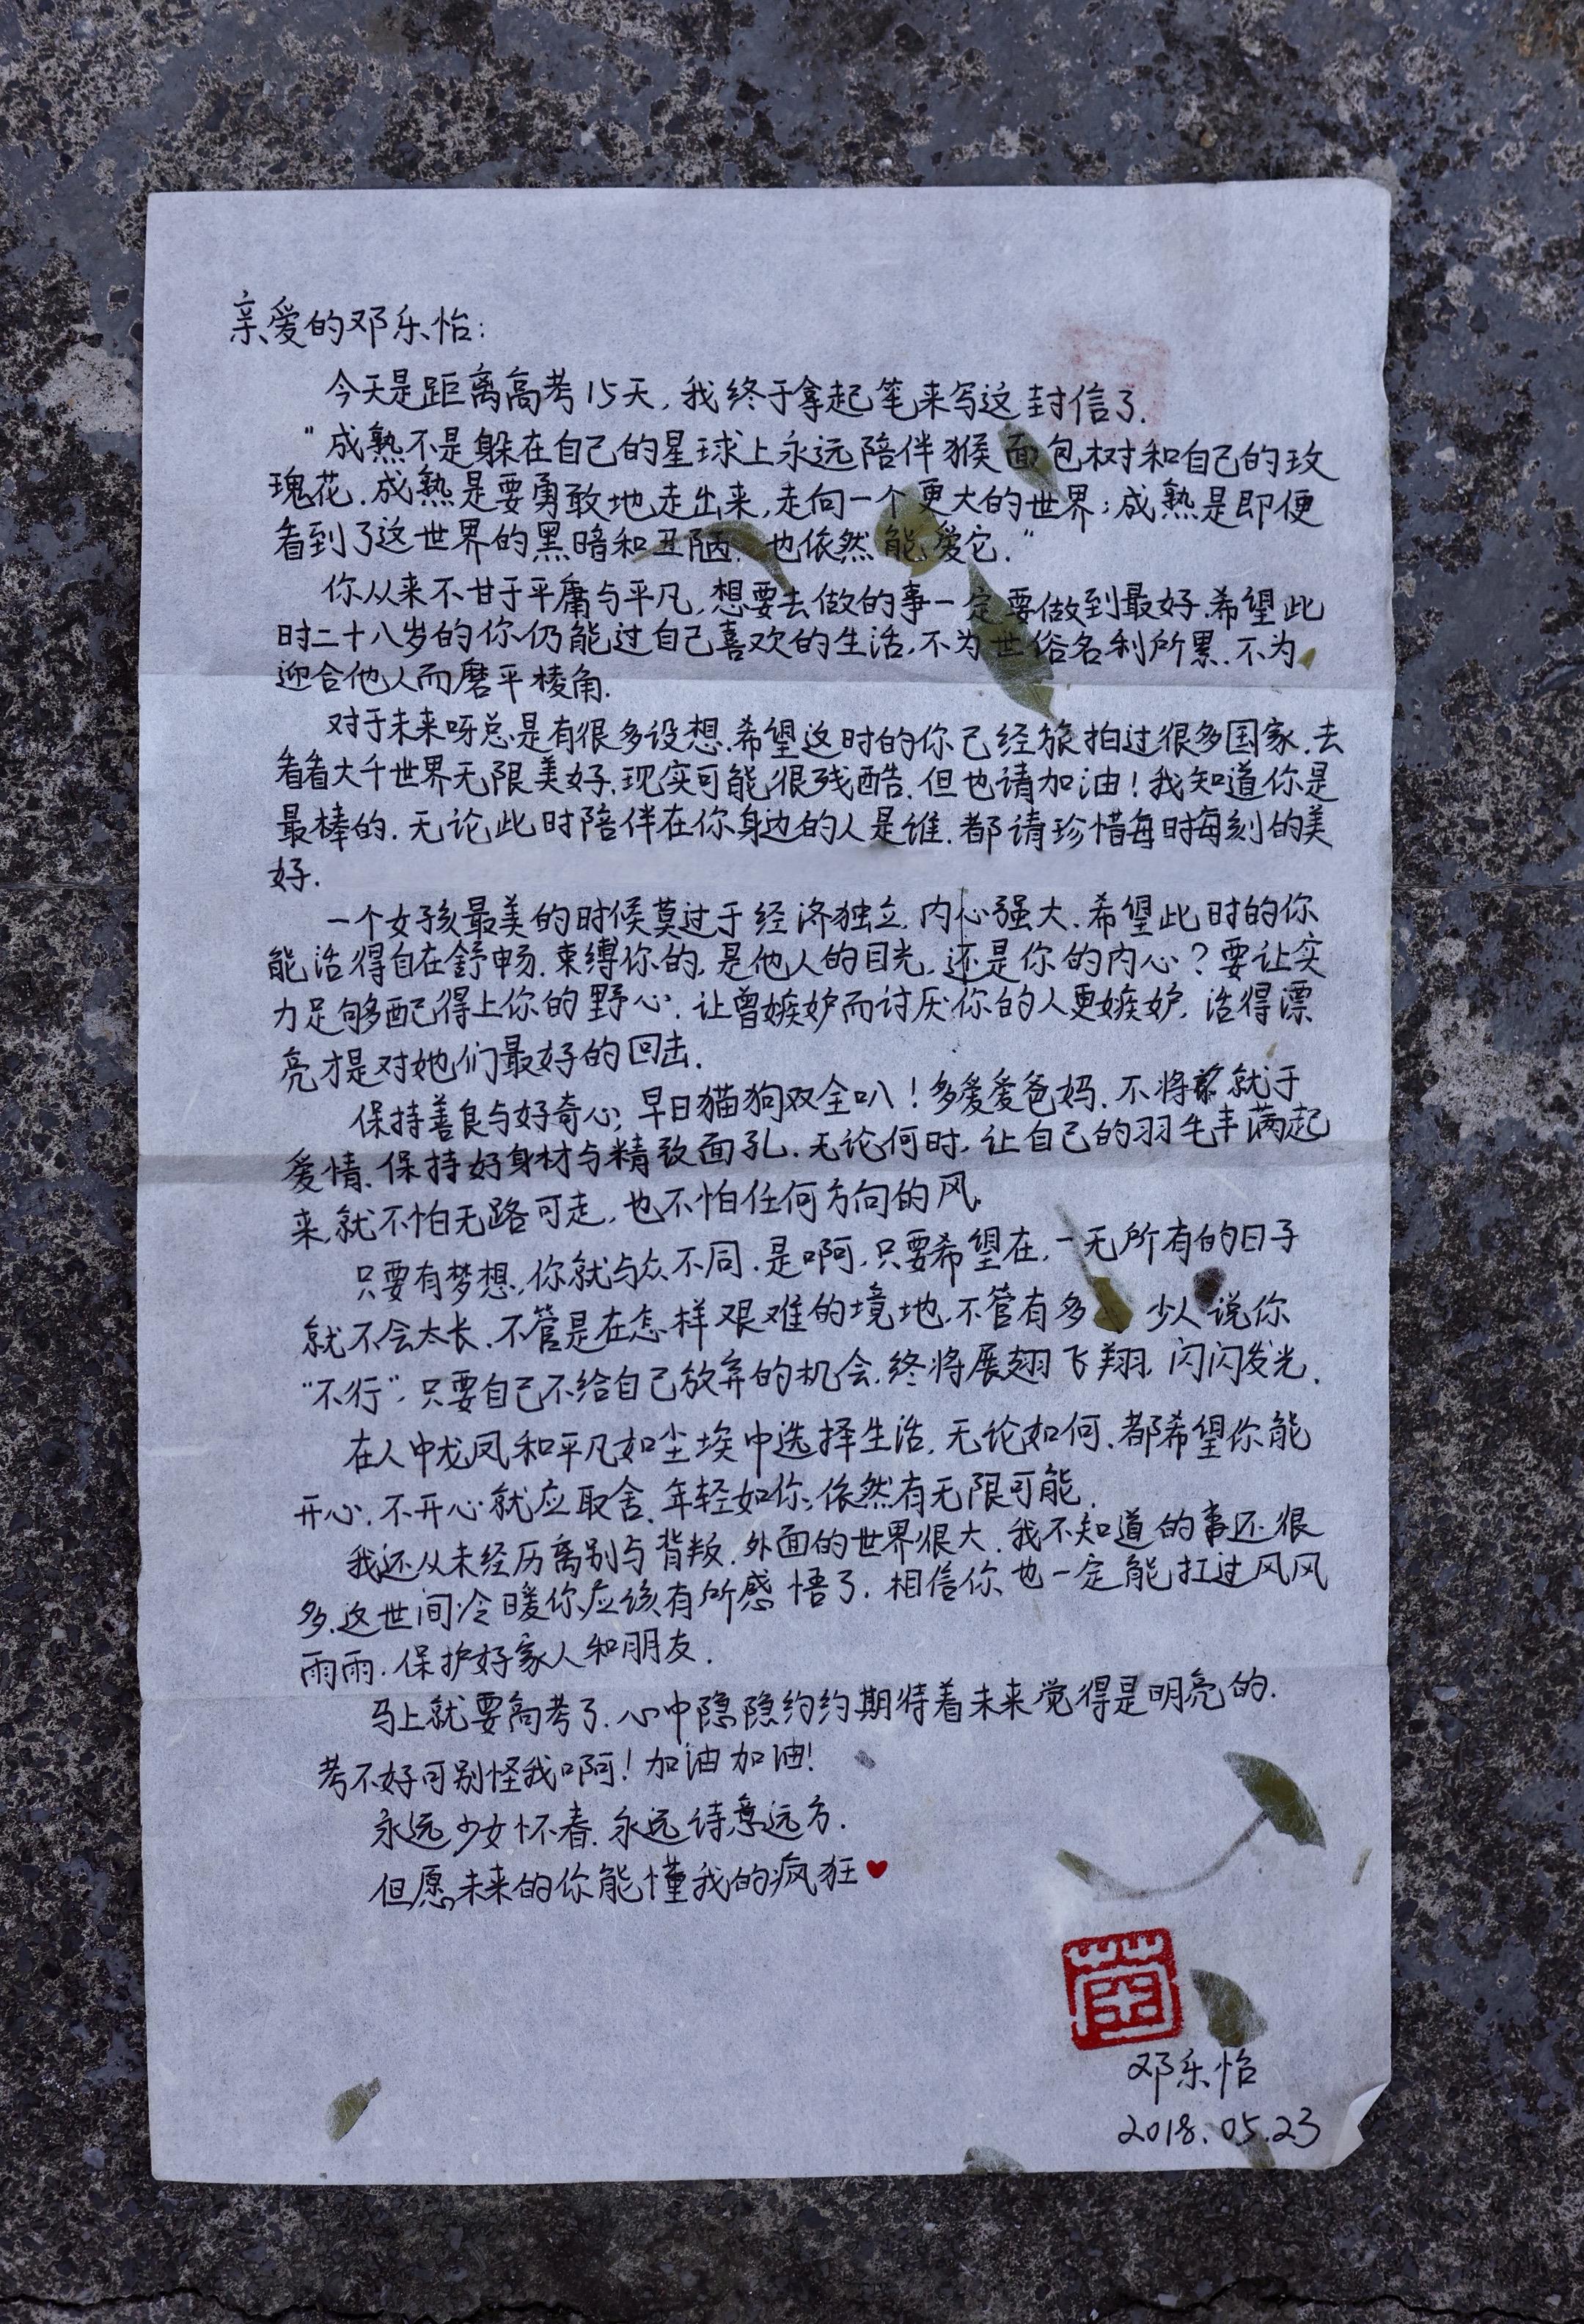 亲爱的邓乐怡:
今天是距离高考15天,我终于拿起笔来写这封信了.
“成熟不是躲在自己的星球上永远陪伴猴面包树和自己的玫
瑰花.成熟是要勇敢地走出来,走向一个更大的世界;成熟是即便
看到了这世界的黑暗和丑陋,也依然能爱它.”
你从来不甘于平庸与平凡,想要去做的事一定要做到最好.希望此
时二十八岁的你仍能过自己喜欢的生活,不为世俗名利所累.不为
迎合他人而磨平棱角.
对于未来呀总是有很多设想.希望这时的你已经旅拍过很多国家.去
看看大千世界无限美好.现实可能很残酷.但也请加油!我知道你是
最棒的.无论此时陪伴在你身边的人是谁.都请珍惜每时每刻的美
好.
一个女孩最美的时候莫过于经济独立,内心强大.希望此时的你
能活得自在舒畅.束缚你的,是他人的目光,还是你的内心?要让实
力足够配得上你的野心.让曾嫉妒而讨厌你的人更嫉妒,活得漂
亮才是对她们最好的回击.
保持善良与好奇心,早日猫狗双全叭!多爱爱爸妈.不将就于
爱情.保持好身材与精致面孔.无论何时,让自己的羽毛丰满起
来,就不怕无路可走,也不怕任何方向的风.
只要有梦想,你就与众不同.是啊,只要希望在,一无所有的日子
就不会太长.不管是在怎样艰难的境地,不管有多少人说你
“不行”,只要自己不给自己放弃的机会.终将展翅飞翔,闪闪发光.
在人中龙凤和平凡如尘埃中选择生活,无论如何,都希望你能
开心.不开心就应取舍.年轻如你,依然有无限可能.
我还从未经历离别与背叛.外面的世界很大.我不知道的事还很
多.这世间冷暖你应该有所感悟了.相信你也一定能扛过风风
雨雨.保护好家人和朋友.
马上就要高考了.心中隐隐约约期待着未来觉得是明亮的.
考不好可别怪我啊!加油加油!
永远少女怀春.永远诗意远方.
但愿未来的你能懂我的疯狂♥
邓乐怡
2018.05.23